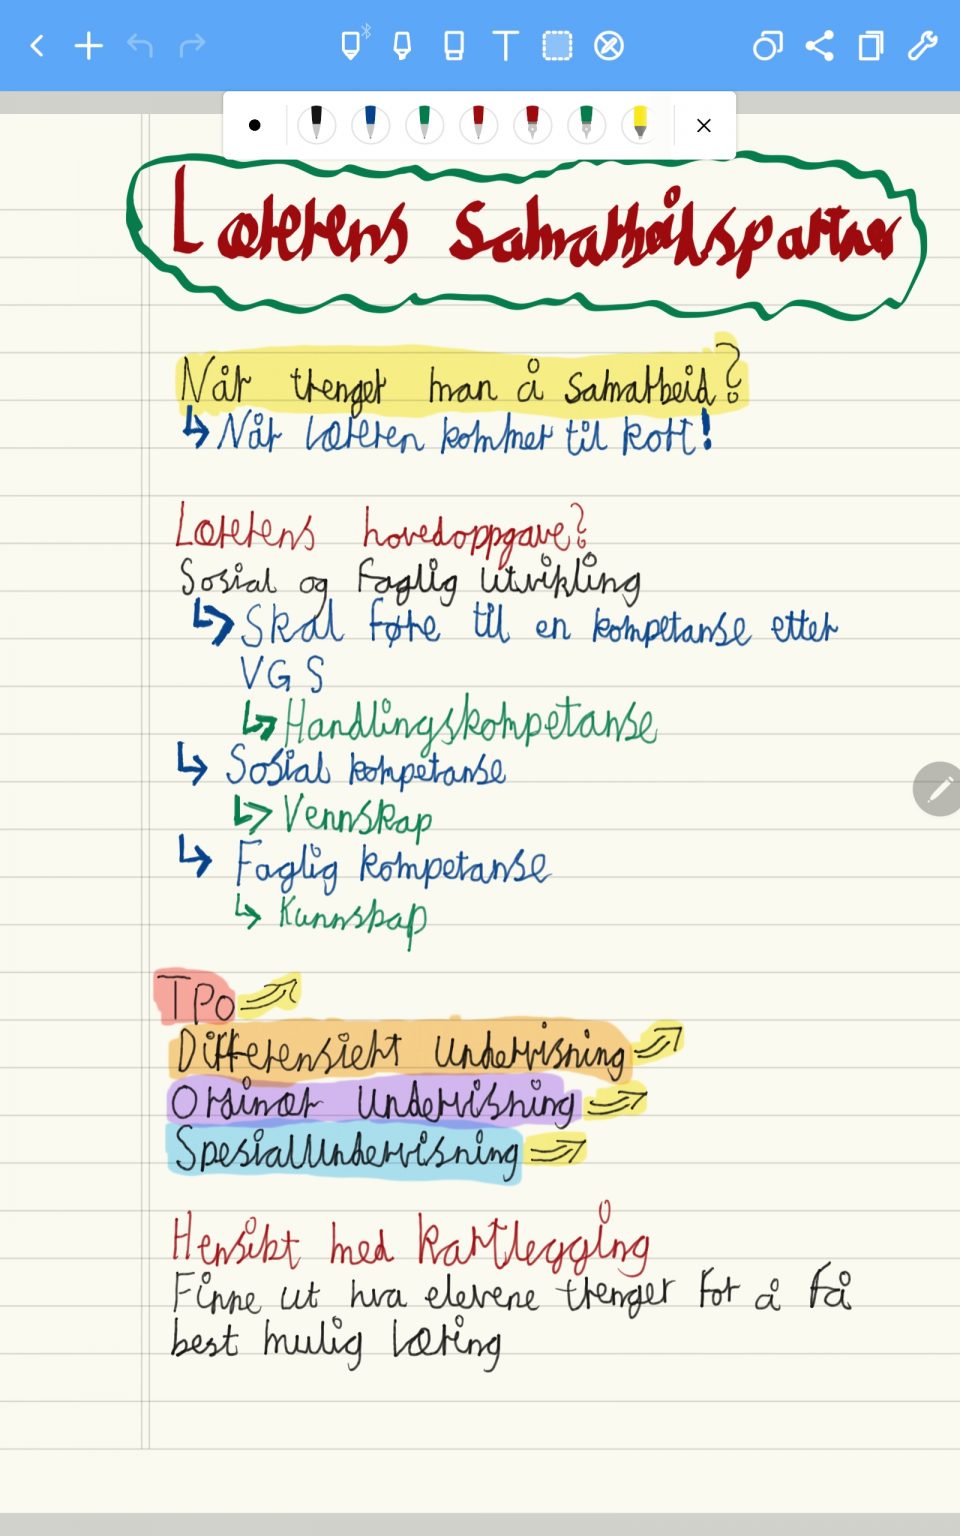 Lærerens Samarbeidspartner
Når trenger man å samarbeid?
↳ Når læreren kommer til kort!
Lærerens hovedoppgave?
Sosial og faglig utvikling
↳ Skal føre til en kompetanse etter
VGS
↳ Handlingskompetanse
↳ Sosial kompetanse
↳ Vennskap
↳ Faglig kompetanse
↳ Kunnskap
TPO
Differensiert undervisning
Ordinær undervisning
Spesialundervisning
Hensikt med kartlegging
Finne ut hva elevene trenger for å få
best mulig læring